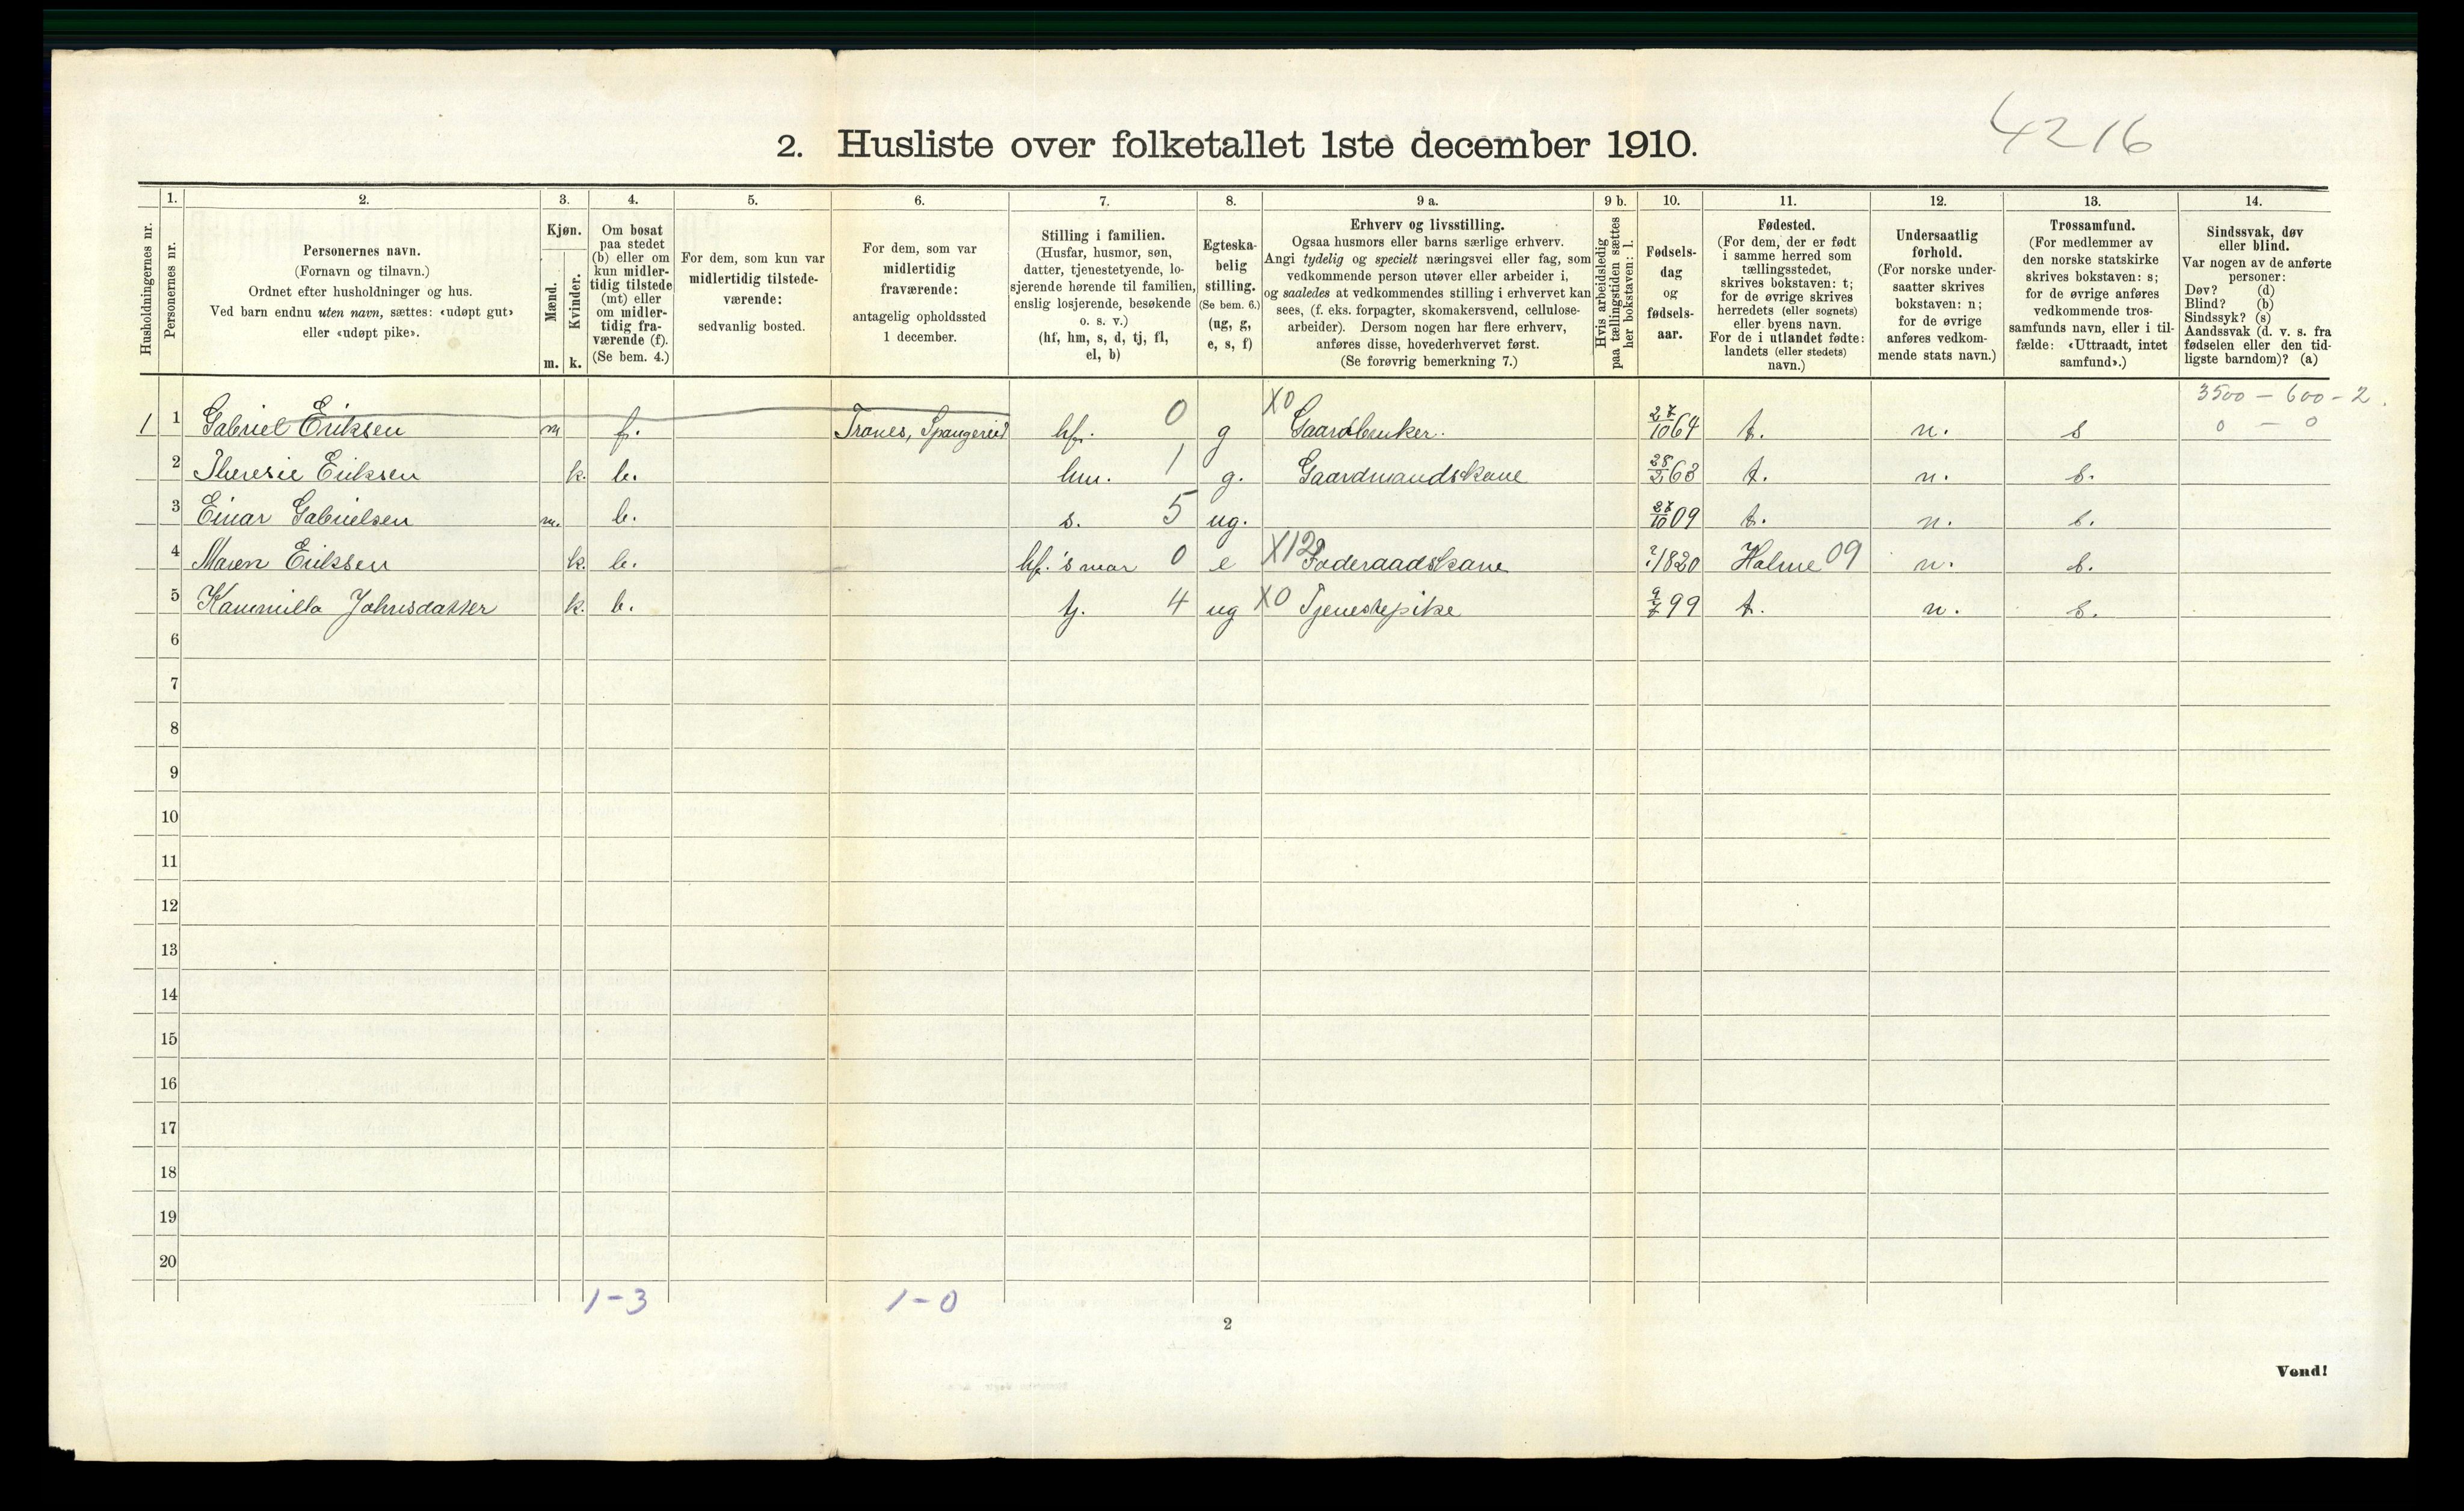 4216
2. Husliste over folketallet 1ste december 1910.
Husholdningernes nr.
1.
Personernes nr.
2.
Personernes navn.
(Fornavn og tilnavn.)
Ordnet efter husholdninger og hus.
Ved barn endnu uten navn, sættes: «udøpt gut»
eller «udøpt pike».
3.
Kjøn.
Mænd.
m.
Kvinder.
k.
4.
Om bosat
paa stedet
(b) eller om
kun midler-
tidig tilstede
(mt) eller
om midler-
tidig fra-
værende (f).
(Se bem. 4.)
5.
For dem, som kun var
midlertidig tilstede-
værende:
sedvanlig bosted.
6.
For dem, som var
midlertidig
fraværende:
antagelig opholdssted
1 december.
7.
Stilling i familien.
(Husfar, husmor, søn,
datter, tjenestetyende, lo-
sjerende hørende til familien,
enslig losjerende, besøkende
o. s. v.)
(hf, hm, s, d, tj, fl,
el, b)
8.
Egteska-
belig
stilling.
(Se bem. 6.)
(ug, g,
e, s, f)
9 a.
Erhverv og livsstilling.
Ogsaa husmors eller barns særlige erhverv.
Angi tydelig og specielt næringsvei eller fag, som
vedkommende person utøver eller arbeider i,
og saaledes at vedkommendes stilling i erhvervet kan
sees, (f. eks. forpagter, skomakersvend, cellulose-
arbeider). Dersom nogen har flere erhverv,
anføres disse, hovederhvervet først.
(Se forøvrig bemerkning 7.)
9 b.
Hvis arbeidsledig
paa tællingstiden sættes
her bokstaven: l.
10.
Fødsels-
dag
og
fødsels-
aar.
11.
Fødested.
(For dem, der er født
i samme herred som
tællingsstedet,
skrives bokstaven: t;
for de øvrige skrives
herredets (eller sognets)
eller byens navn.
For de i utlandet fødte:
landets (eller stedets)
navn.)
12.
Undersaatlig
forhold.
(For norske under-
saatter skrives
bokstaven: n;
for de øvrige
anføres vedkom-
mende stats navn.)
13.
Trossamfund.
(For medlemmer av
den norske statskirke
skrives bokstaven: s;
for de øvrige anføres
vedkommende tros-
samfunds navn, eller i til-
fælde: «Uttraadt, intet
samfund».)
14.
Sindssvak, døv
eller blind.
Var nogen av de anførte
personer:
Døv? (d)
Blind? (b)
Sindssyk? (s)
Aandssvak (d. v. s. fra
fødselen eller den tid-
ligste barndom)? (a)
3500 - 600 - 2.
1 1 Gabriel Eriksen m f. Trones, Spangereid hf. 0 g X0 Gaardbruker. 27/10 64 t. n. s 0 - 0
2 Theresie Eriksen k. b. hm. 1 g. Gaardmandskone 28/2 63 t. n. s.
3 Einar Gabrielsen m. b. s. 5 ug. 27/10 09 t. n. s.
4 Maren Eriksen k. b. hf.'s mor 0 e X12 Føderaadskone ? 1820 Halme 09 n. s.
5 Kammilla Johnsdatter k. b. tj. 4 ug X0 Tjenestepike 9/7 99 t. n. s.
6
7
8
9
10
11
12
13
14
15
16
17
18
19
20
1-3 1-0
2
Vend!